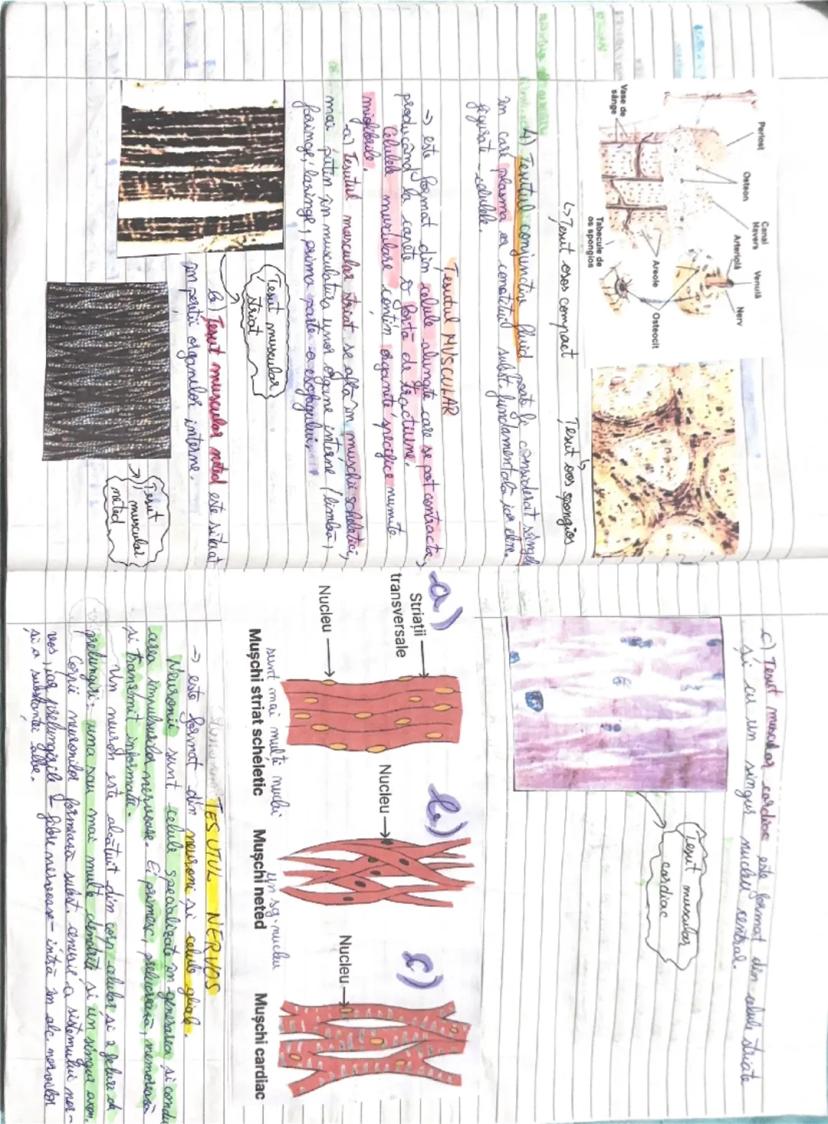 Periost
Osteon
Canal
Havers
Arteriolă
Venulă
Nerv
Vase de
sânge
Areole
Osteocit
Tabecule de
os spongios
↳ Țesut osos compact
Țesut osos spongios
4) Țesutul conjunctiv fluid poate fi considerat sângele
în care plasma constituie subst. fundamentală iar elem.
figurate celulele.
Țesutul MUSCULAR
→ este format din celule alungite care se pot contracta,
producând la capete o forță de tracțiune.
Celulele musculare conțin organite specifice numite
miofibrile.
a) Țesutul muscular striat se află în mușchii scheletici,
mai puțin în musculatura unor organe interne (limbă,
faringe, laringe, prima parte a esofagului.
Țesut muscular
striat
b) Țesut muscular neted este situat
în pereții organelor interne.
Țesut
muscular
neted
c) Țesut muscular cardiac este format din celule striate
și cu un singur nucleu central.
Țesut muscular
cardiac
a)
Striații
transversale
Nucleu
sunt mai multe nuclei
Mușchi striat scheletic
b)
Nucleu
un sg. nucleu
Mușchi neted
c)
Nucleu
Mușchi cardiac
ȚESUTUL NERVOS
→ este format din neuroni și celule gliale.
Neuronii sunt celule specializate în generarea și condu-
cerea impulsurilor nervoase. Ei primesc, prelucrează, memorează
și transmit informații.
Un neuron este alcătuit din corp celular și 2 feluri de
prelungiri: una sau mai multe dendrite și un singur axon.
Corpii neuronilor formează subst. cenușie a sistemului ner-
vos, iar prelungirile fibre nervoase - intră în alc. nervilor
și a substanței albe.